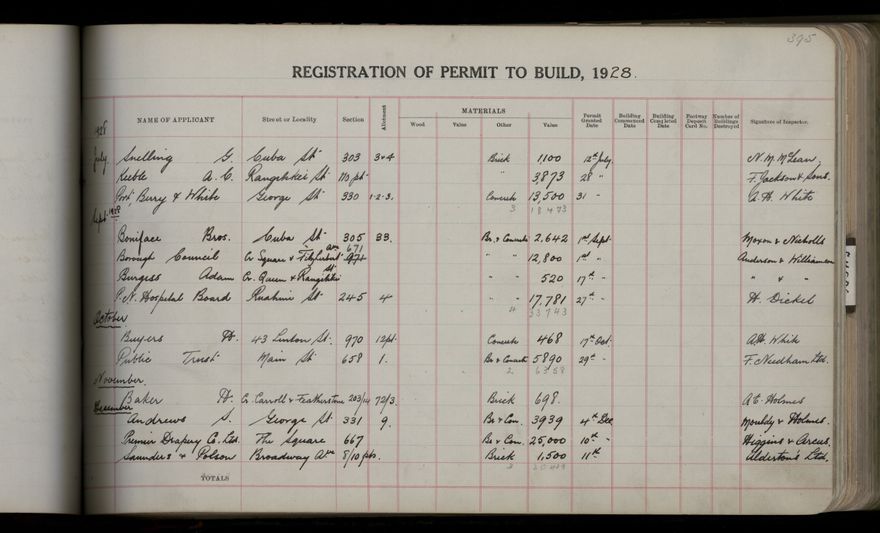 395
REGISTRATION OF PERMIT TO BUILD, 1928.
NAME OF APPLICANT Street or Locality Section Allotment MATERIALS Permit Granted Date Building Commenced Date Building Completed Date Footway Deposit Card No. Number of Buildings Destroyed Signature of Inspector.
Wood Value Other Value
1928
July. Snelling G. Cuba St 303 3+4 Brick 1,100 12th July. N. M. McLean.
Keeble A. C. Rangitikei St 110 pt. " 3,873 28 " F. Jackson & Sons.
Port, Berry & White George St 330 1.2.3. Concrete 13,500 31 " A. H. White
3 18473
Sept 1928
Boniface Bros. Cuba St 305 33. Br. & Concrete 2,642 1st Sept Moxon & Nicholls
Borough Council Cr Square & Fitzherbert Ave 671 " " 12,800 1st " Anderson & Williamson
Burgess Adam Cr. Queen & Rangitikei St 520 17th " " & "
P. N. Hospital Board Ruahine St 245 4 " " 17,781 27th " H. Dickel
4 33743
October
Buyers H. 43 Linton St. 970 12pt. Concrete 468 17th Oct. A.H. White
Public Trust Main St 658 1. Br & Concrete 5890 29th " F. Needham Ltd.
2 6358
November
Baker H. Cr. Carroll & Featherston 203/14 72/3 Brick 698. A. E. Holmes
December
Andrews S. George St. 331 9. Br & Con. 3939 4th Dec Mouldy & Holmes.
Premier Drapery Co. Ltd. The Square 667 Br & Con. 25,000 10th " Higgins & Arcus.
Saunders & Polson Broadway Ave 8/10 pts. Brick 1,500 11th Alderton's Ltd.
3
TOTALS